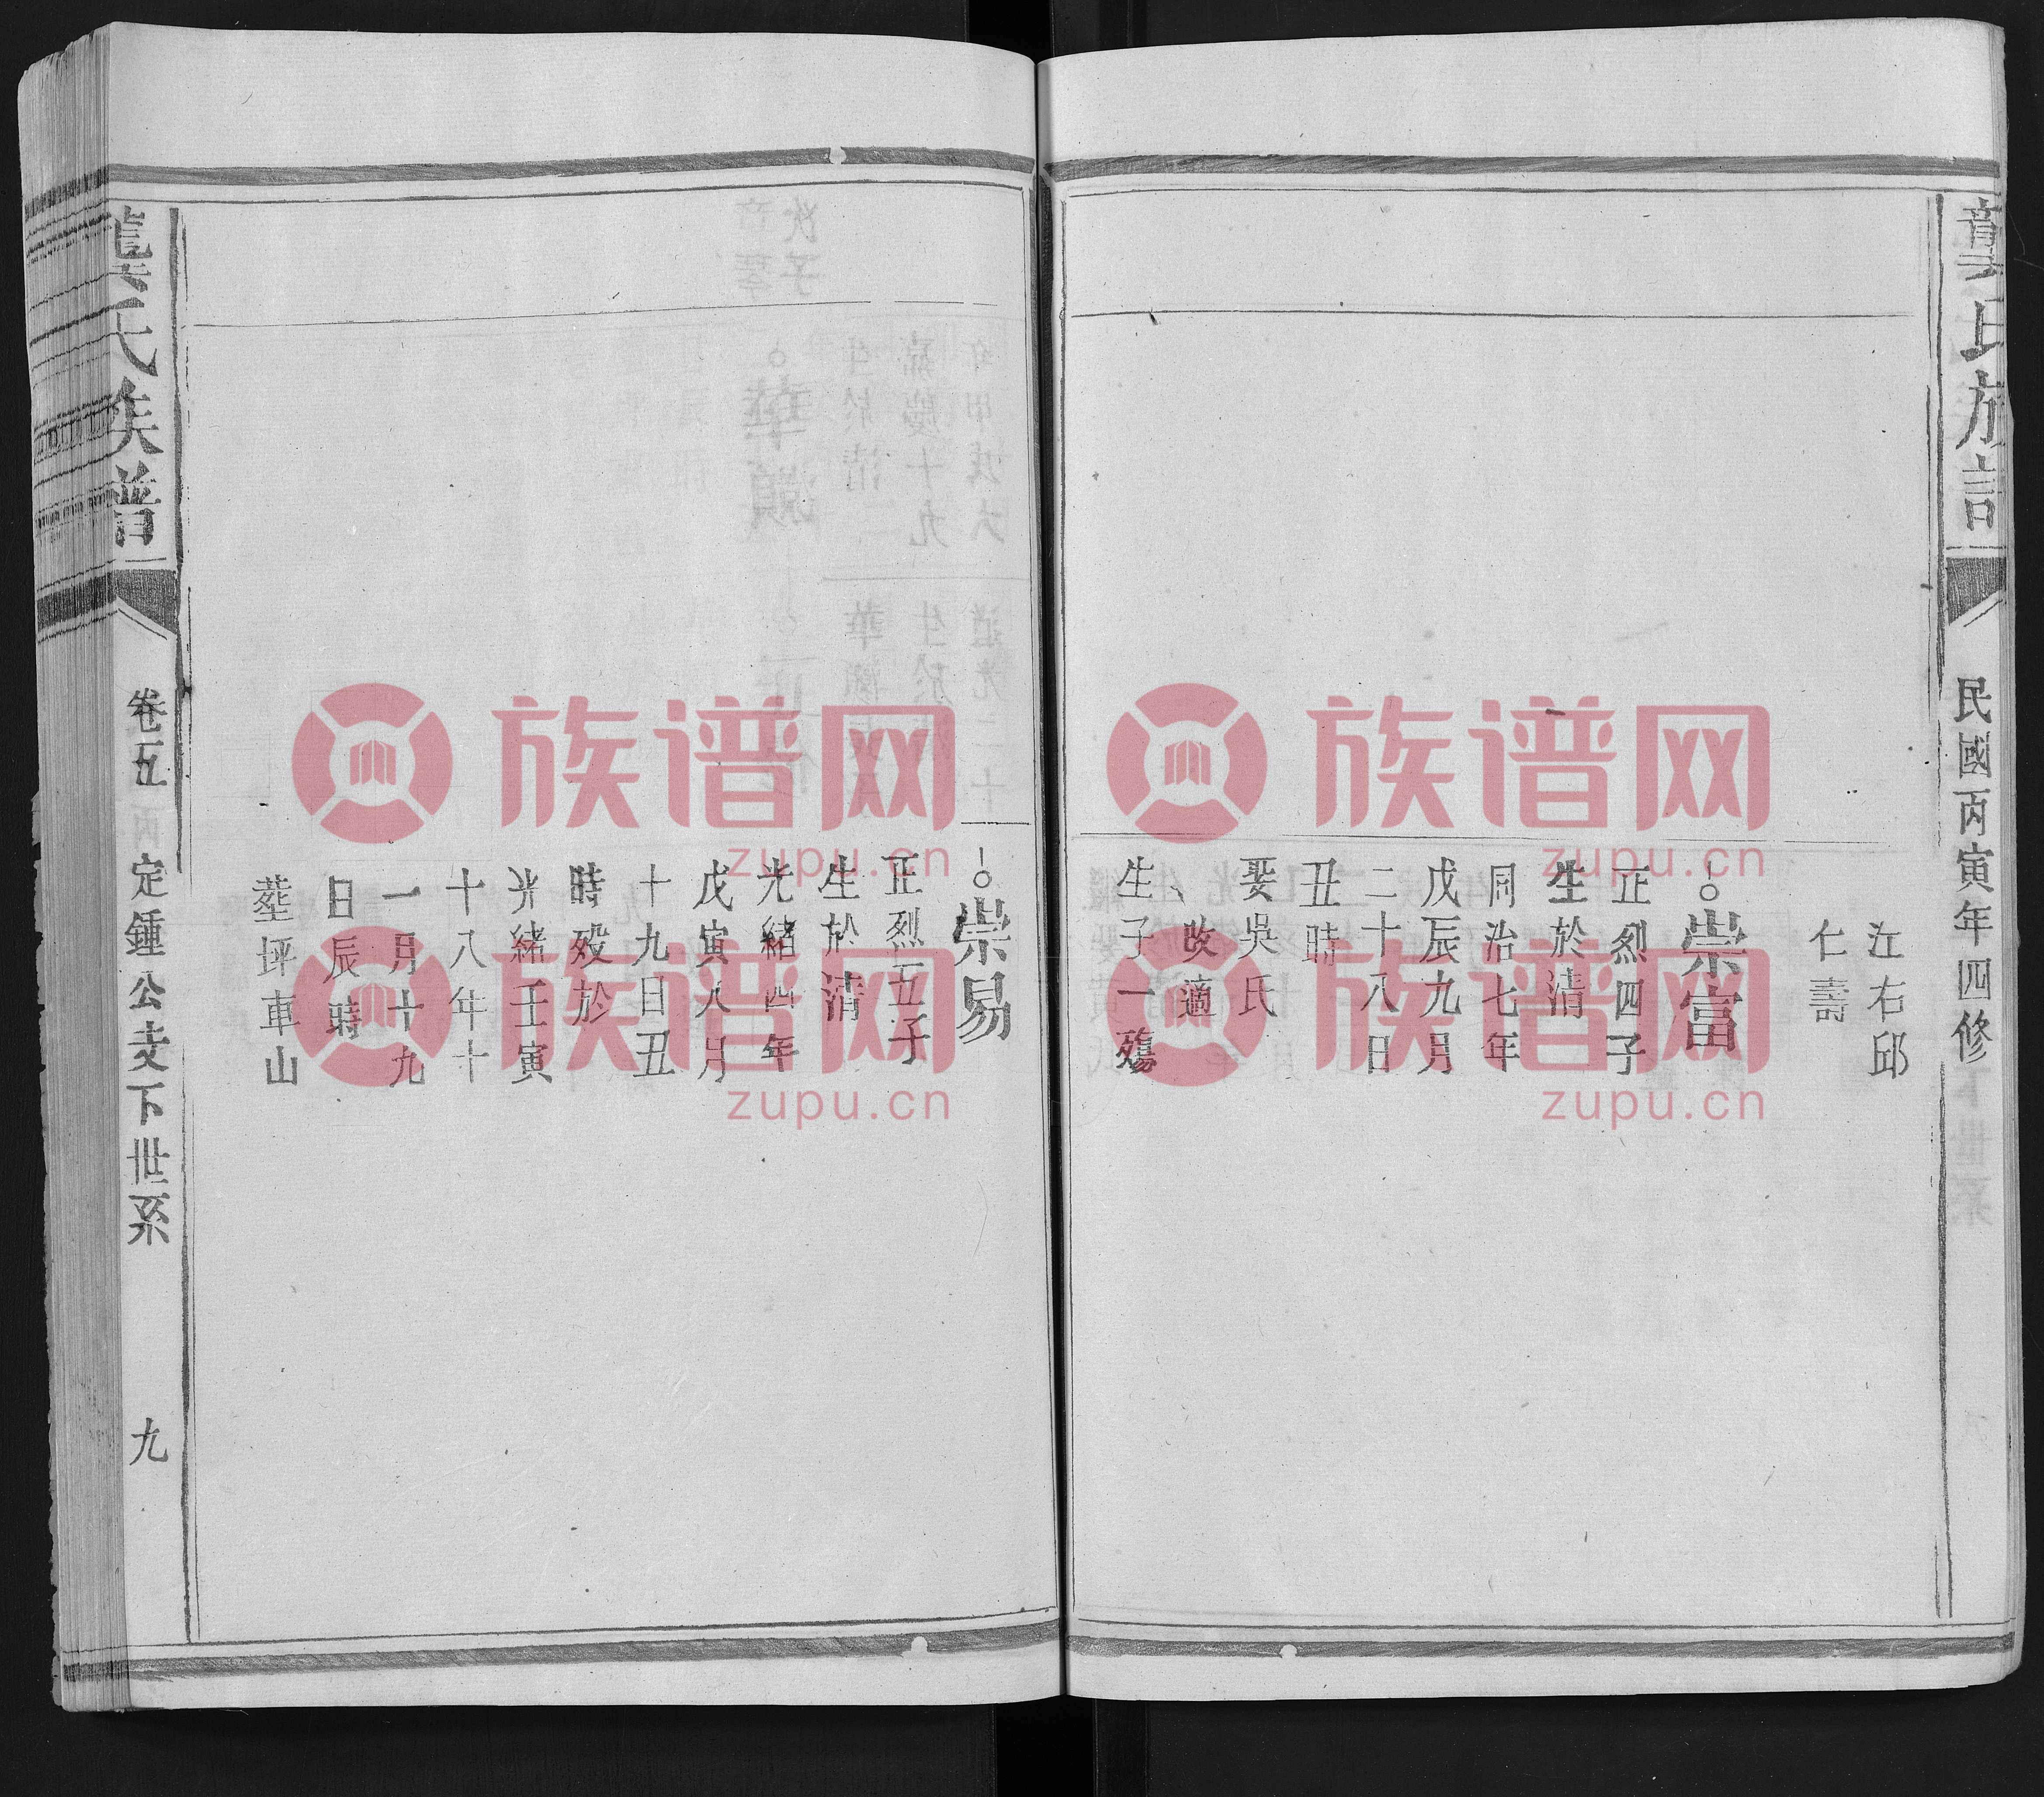 龔氏族譜
民國丙寅年四修
江右邱
仁壽
崇富
正烈四子
生於清
同治七年
戊辰九月
二十八日
丑時
娶吳氏
改適
生子一殤
崇易
正烈五子
生於清
光緒四年
戊寅八月
十九日丑
時歿於
光緒壬寅
十八年十
一月十九
日辰時
葬坪車山
龔氏族譜
卷五
定鍾公支下世系
九
族谱网
zupu.cn
族谱网
zupu.cn
族谱网
zupu.cn
族谱网
zupu.cn